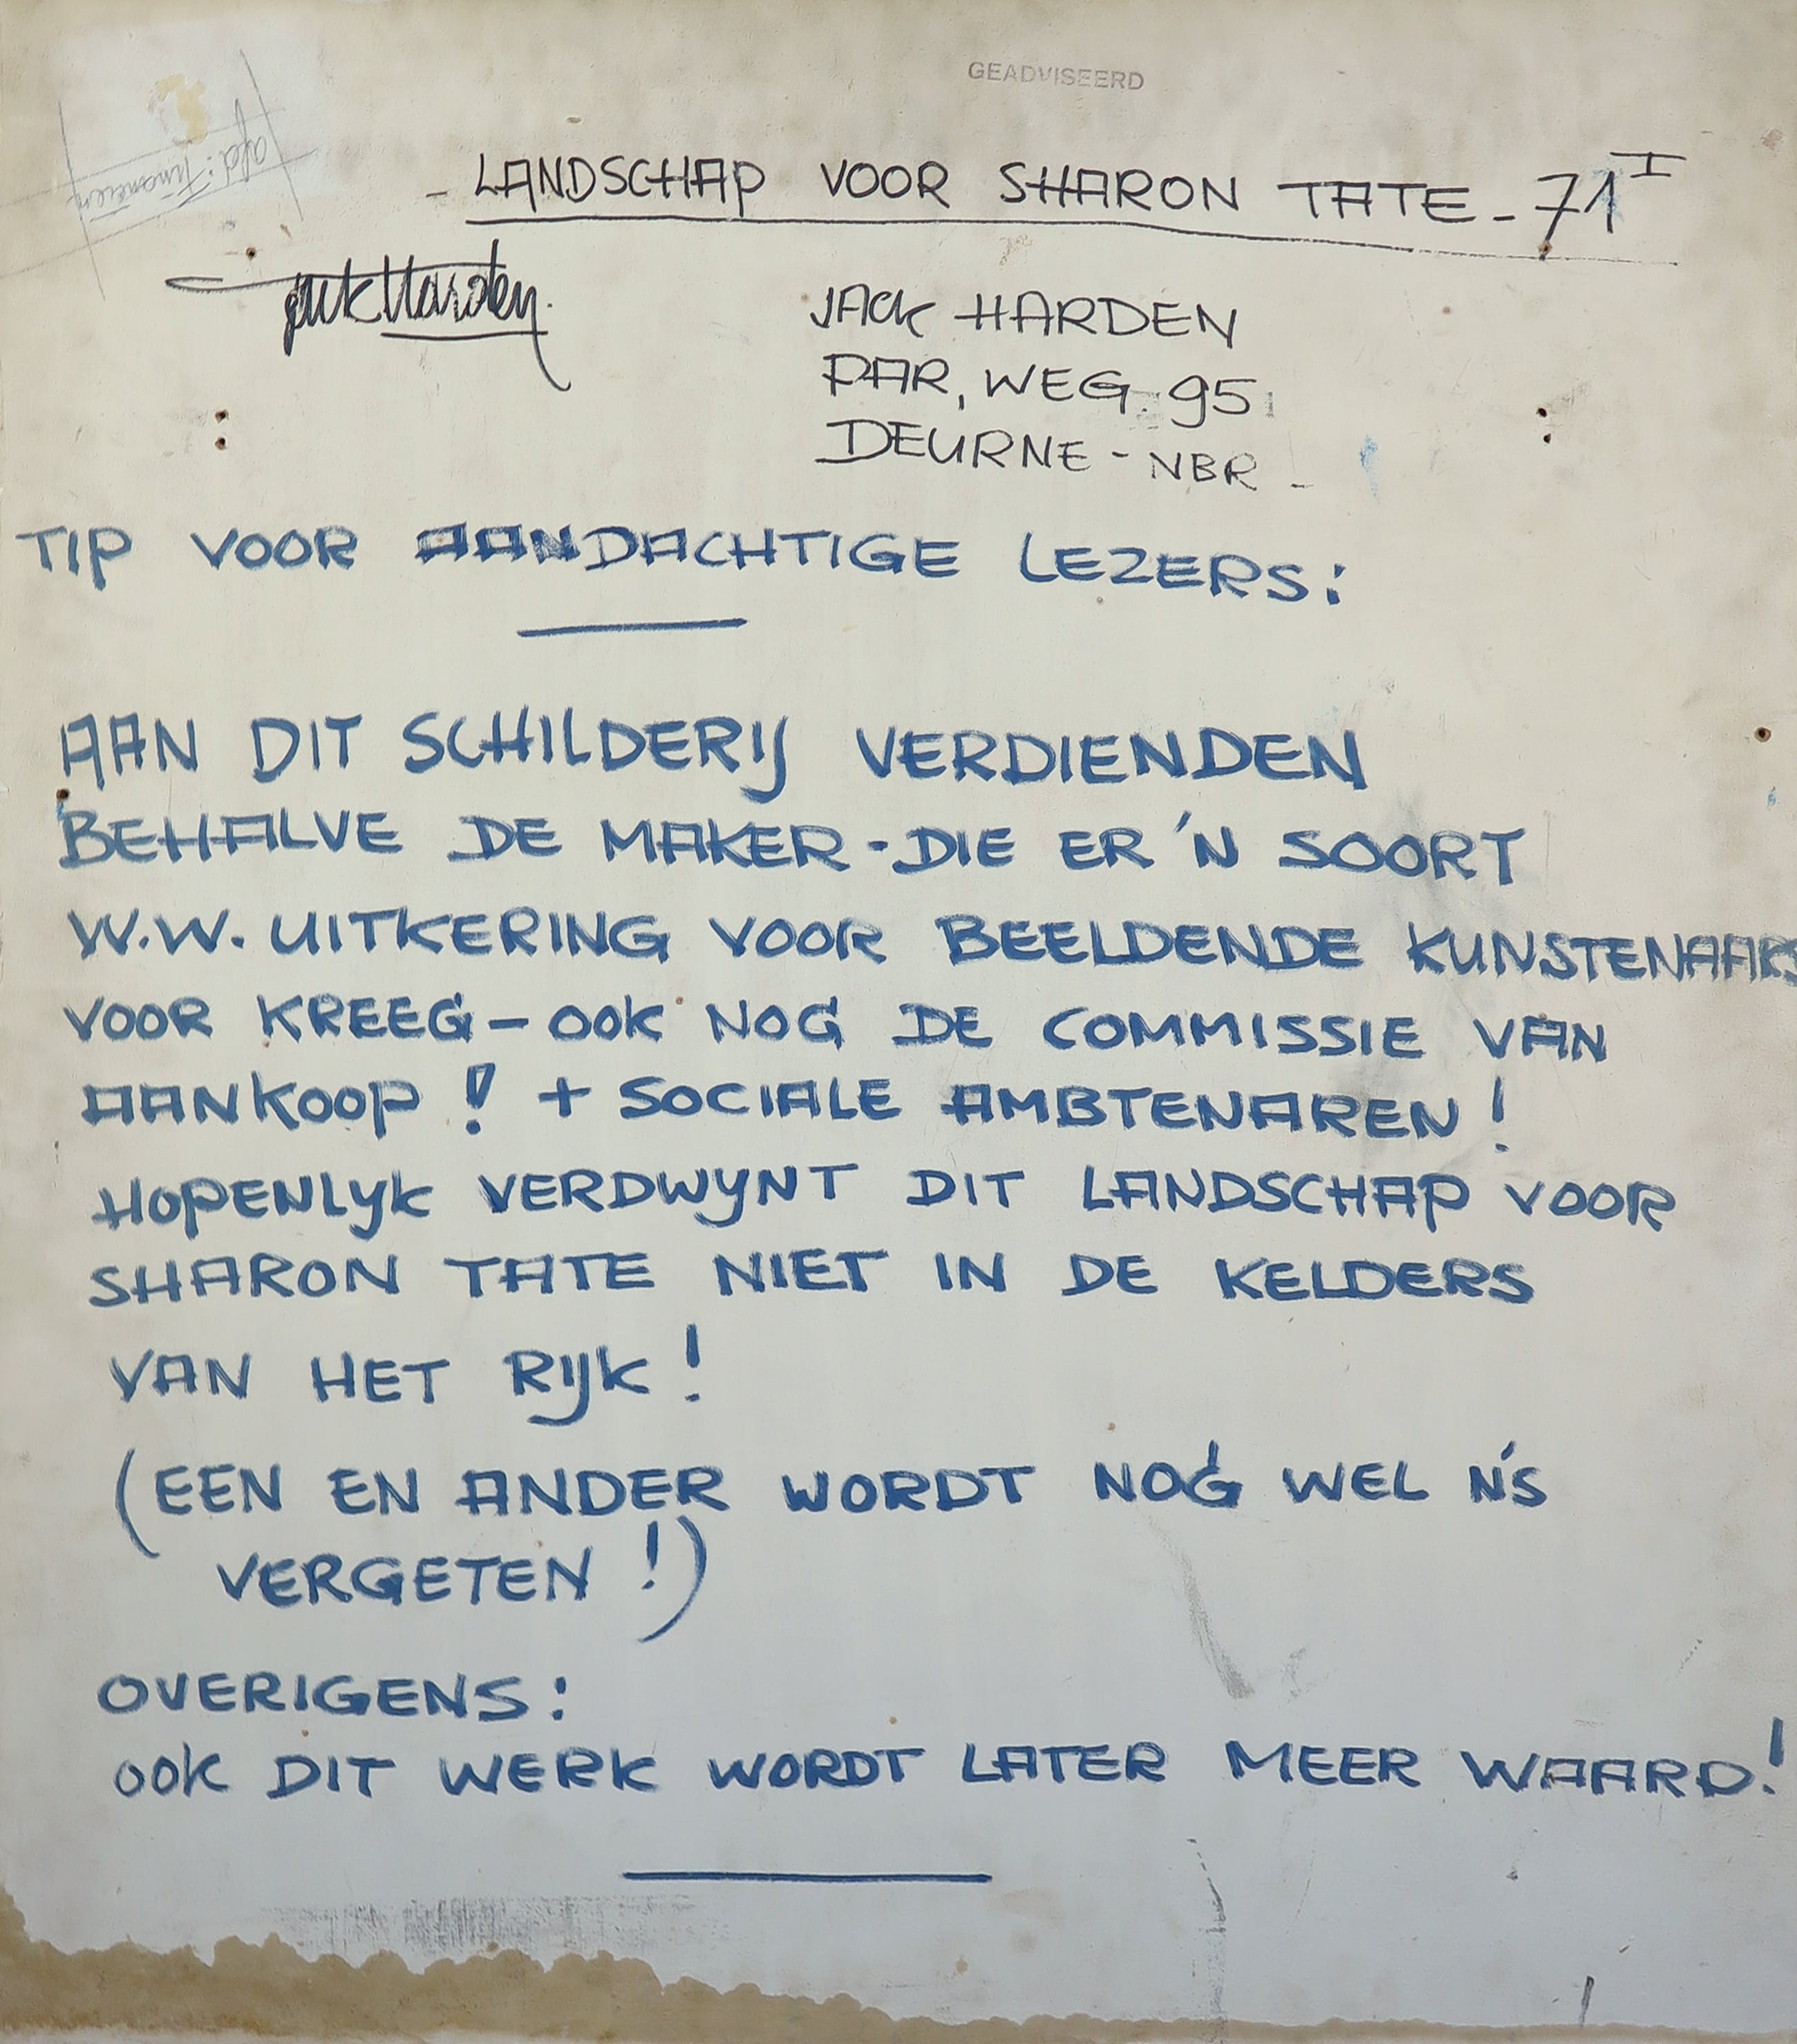 GEADVISEERD
- LANDSCHAP VOOR SHARON TATE - 71 I
Jack Harden.
JACK HARDEN
PAR, WEG. 95
DEURNE - NBR -
TIP VOOR AANDACHTIGE LEZERS:
AAN DIT SCHILDERIJ VERDIENDEN
BEHALVE DE MAKER - DIE ER 'N SOORT
W.W. UITKERING VOOR BEELDENDE KUNSTENAARS
VOOR KREEG - OOK NOG DE COMMISSIE VAN
AANKOOP! + SOCIALE AMBTENAREN!
HOPENLYK VERDWYNT DIT LANDSCHAP VOOR
SHARON TATE NIET IN DE KELDERS
VAN HET RIJK!
(EEN EN ANDER WORDT NOG WEL N'S
VERGETEN!)
OVERIGENS:
OOK DIT WERK WORDT LATER MEER WAARD!